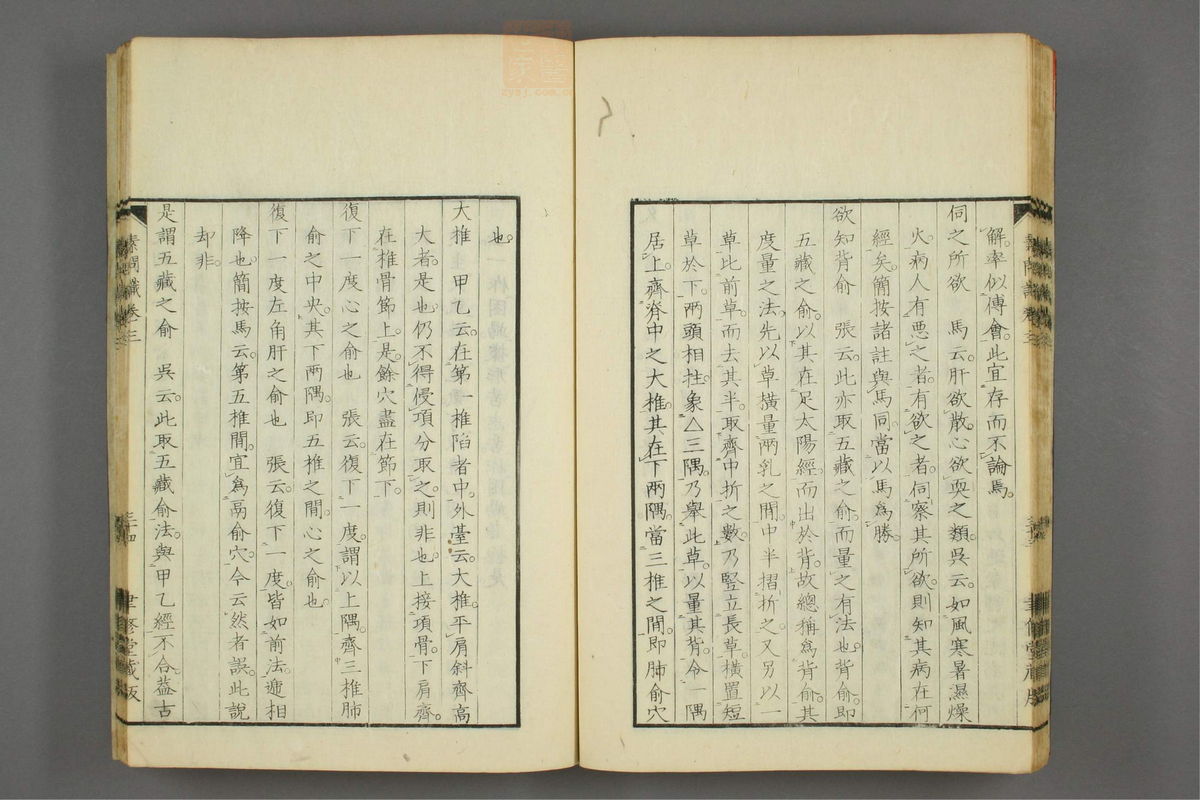 解。率似傅會。此宜存而不論焉。
伺之所欲　馬云。肝欲散。心欲耎之類。吳云。如風寒暑濕燥
火。病人有惡之者。有欲之者。伺察其所欲。則知其病在何
經矣。簡按諸註與馬同。當以馬爲勝。
欲知背俞　張云。此亦取五藏之俞。而量之有法也。背俞。即
五藏之俞。以其在足太陽經。而出於背。故總稱爲背俞。其
度量之法。先以草橫量兩乳之間。中半摺折之。又另以一
草比前草。而去其半。取齊中折之數。乃竪立長草。橫置短
草於下。兩頭相拄。象△三隅。乃舉此草。以量其背。令一隅
居上。齊脊中之大椎。其在下兩隅。當三椎之間。即肺俞穴
也。
大椎　甲乙云。在第一椎陷者中。外臺云。大椎。平肩斜齊高
大者。是也。仍不得侵項分取之。則非也。上接項骨。下肩齊。
在椎骨節上。是。餘穴盡在節下。
復下一度心之俞也　張云。復下一度。謂以上隅。齊三椎肺
俞之中央。其下兩隅。即五椎之間。心之俞也。
復下一度左角肝之俞也　張云。復下一度。皆如前法。遞相
降也。簡按馬云。第五椎間。宜爲鬲俞穴。今云然者誤。此說
却非。
是謂五藏之俞　吳云。此取五藏俞法。與甲乙經不合。蓋古
素問識卷三
三十四
聿修堂藏板